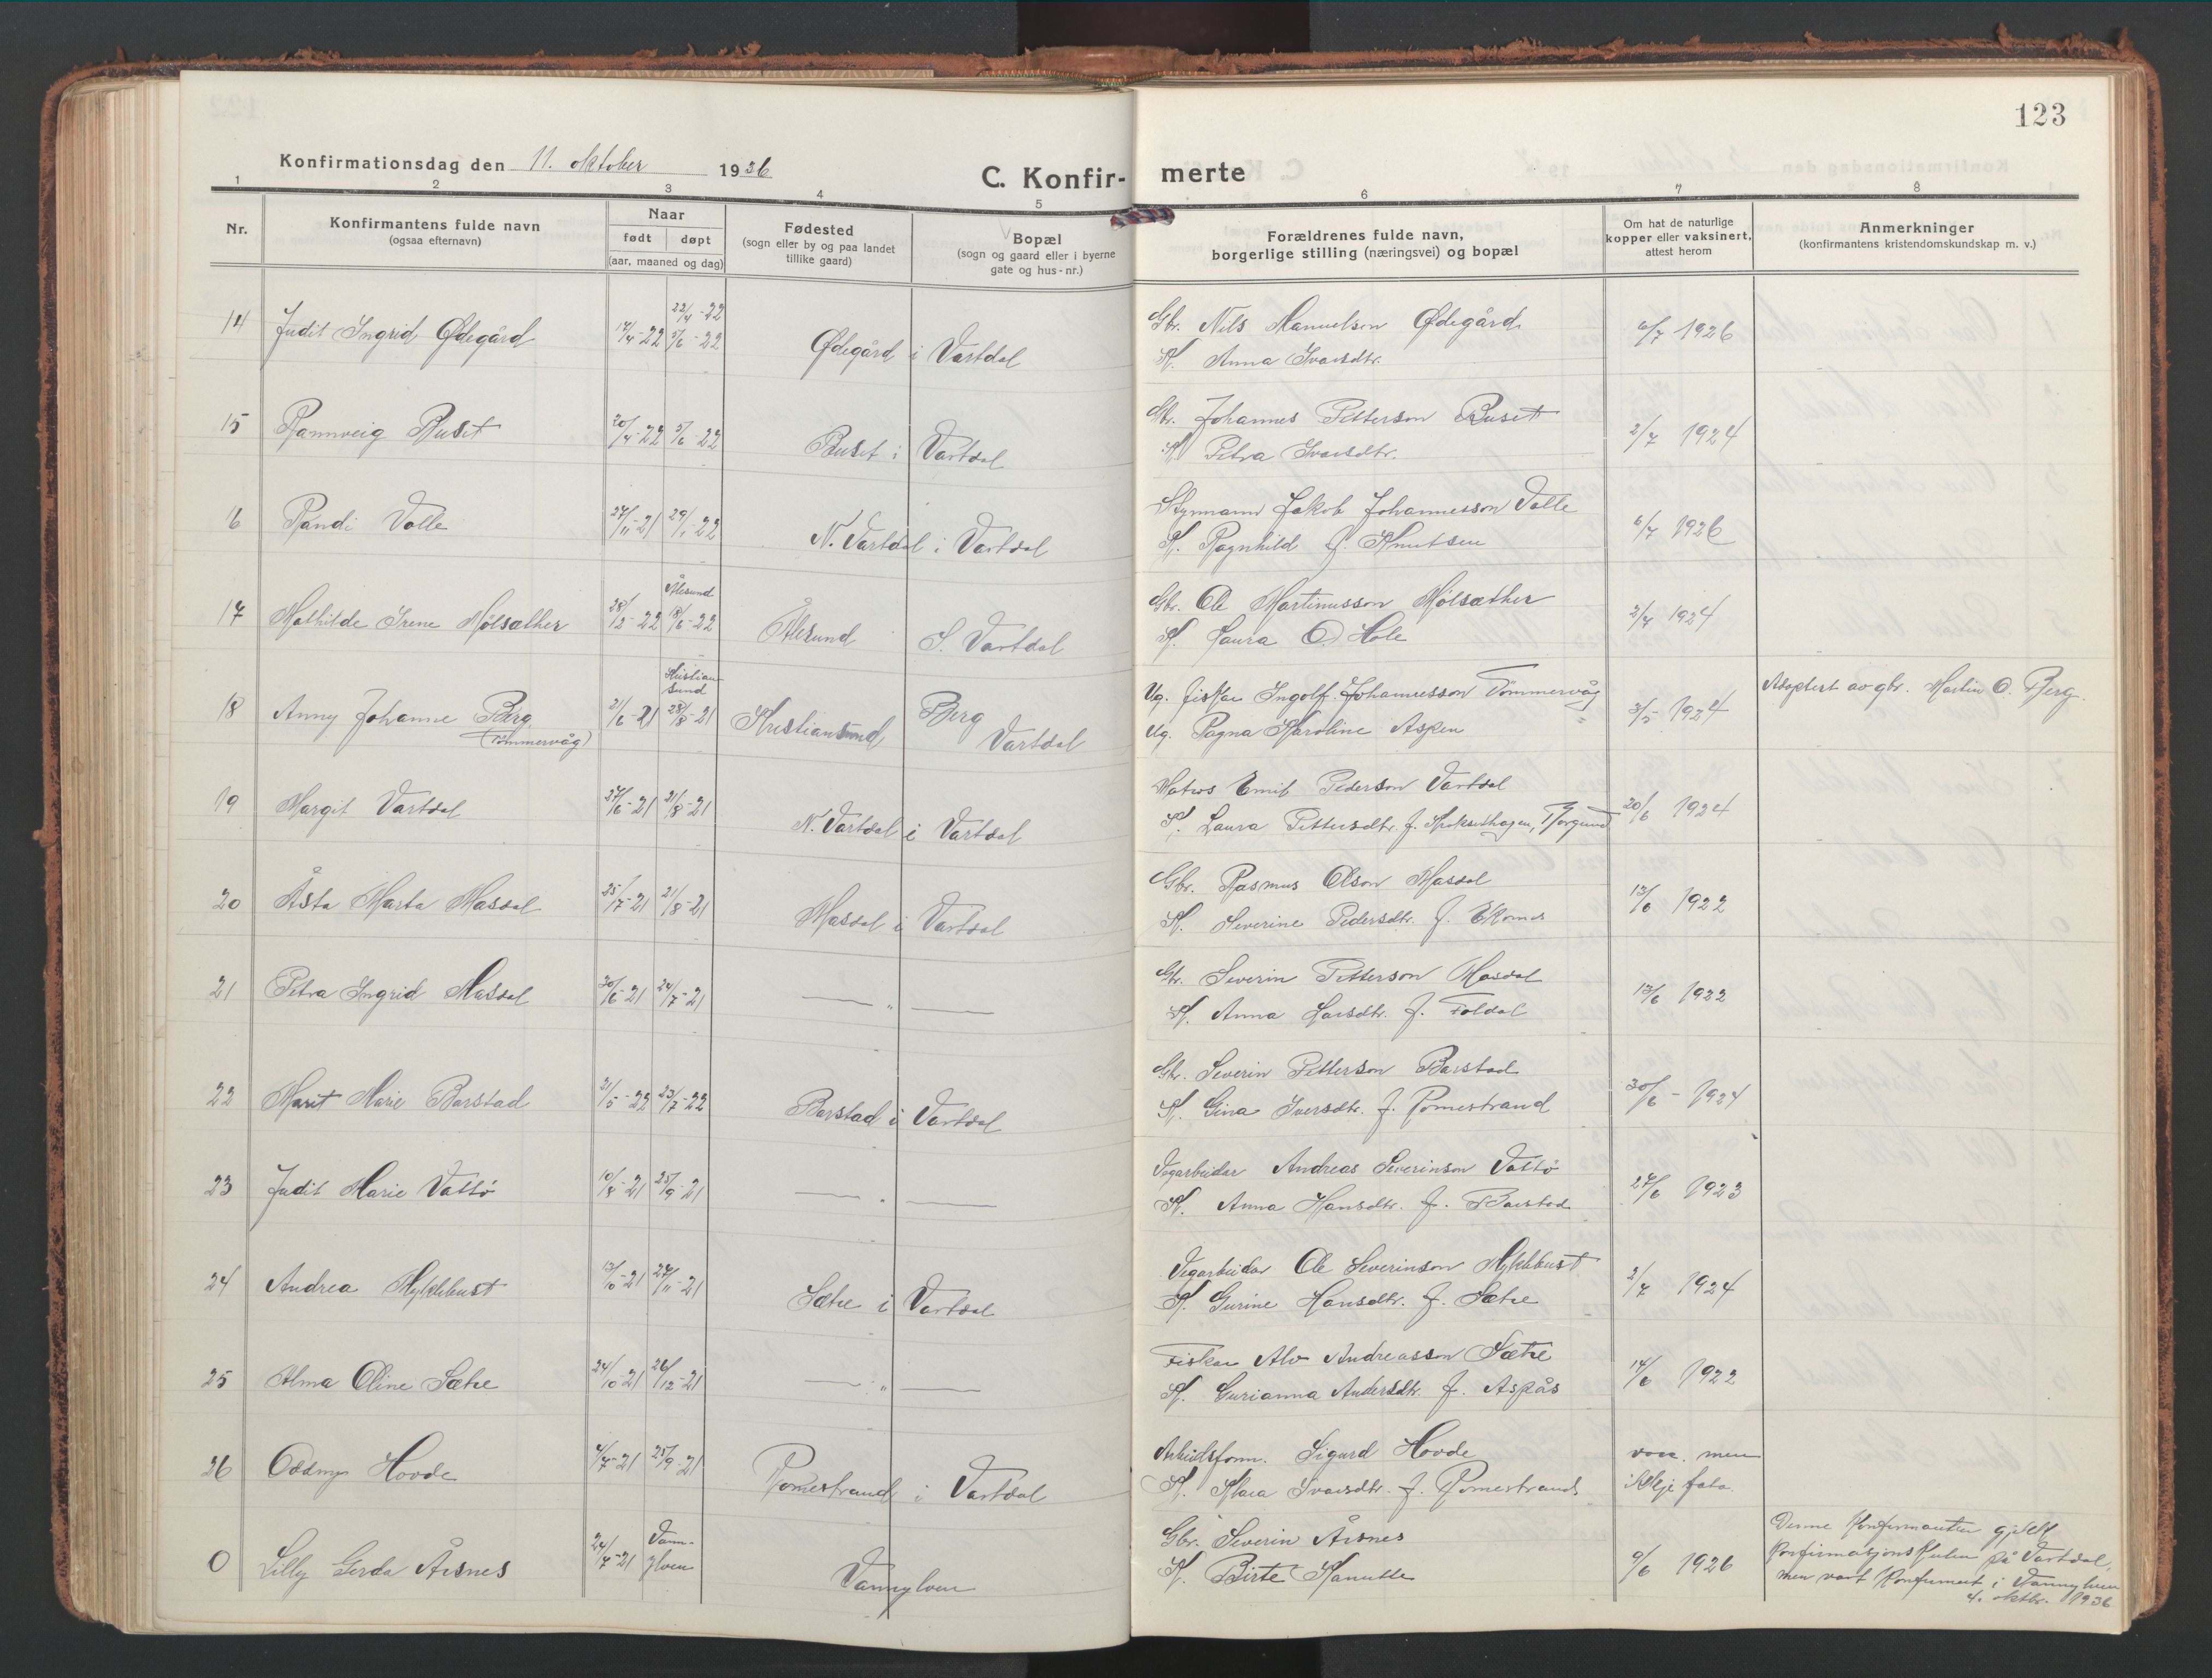 123
Konfirmationsdag den 11. oktober 1936
C. Konfir- merte
1 2 3 4 5 6 7 8
Nr.
Konfirmantens fulde navn
(ogsaa efternavn)
Naar
født døpt
(aar, maaned og dag)
Fødested
(sogn eller by og paa landet
tillike gaard)
Bopæl
(sogn og gaard eller i byerne
gate og hus-nr.)
Forældrenes fulde navn,
borgerlige stilling (næringsvei) og bopæl
Om hat de naturlige
kopper eller vaksinert,
attest herom
Anmerkninger
(konfirmantens kristendomskundskap m. v.)
14 Judit Ingrid Ødegård 17/4-22 22/4-22 5/6-22 Ødegård i Vartdal
Gbr. Nils Manuelson Ødegård 6/7 1926
K. Anna Ivarsdtr.
15 Rannveig Buset 20/4-22 5/6-22 Buset i Vartdal
Gbr. Johannes Petterson Buset 2/7 1924
K. Petra Ivarsdtr.
16 Randi Valle 27/11-21 29/1-22 N. Vartdal i Vartdal
Styrmann Jakob Johannesson Valle 6/7 1926
K. Ragnhild f. Knutsen
17 Mathilde Irene Mølsæther 28/2-22 Ålesund 18/6-22 Ålesund S. Vartdal
Gbr. Ole Martinusson Mølsæther 2/7 1924
K. Laura O. Hole
18 Anny Johanne Berg 21/6-21 Kristiansund 28/8-21 Kristiansund Berg Vartdal
(Tømmervåg)
Ug. fiskar Ingolf Johannesson Tømmervåg 3/5 1924 Adoptert av gbr. Martin O. Berg.
Ug. Ragna Karoline Aspen "
19 Margit Vartdal 27/6-21 21/8-21 N. Vartdal i Vartdal
Matros Emil Pederson Vartdal 20/6 1924
K. Laura Pettersdtr. f. Spoksethagen, Borgund
20 Åsta Marta Masdal 25/7-21 21/8-21 Masdal i Vartdal
Gbr. Rasmus Olson Masdal 13/6 1922
K. Severine Pedersdtr. f. Ekornes
21 Petra Ingrid Masdal 20/6-21 24/7-21 — " —
Gbr. Severin Petterson Masdal 13/6 1922
K. Anna Larsdtr. f. Foldal
22 Marit Marie Barstad 21/5-22 23/7-22 Barstad i Vartdal
Gbr. Severin Petterson Barstad 30/6 - 1924
K. Gina Iversdtr. f. Romestrand
23 Judit Marie Vattø 10/8-21 25/9-21 — " —
Vegarbeidar Andreas Severinson Vattø 27/6 1923
K. Anna Hansdtr. f. Barstad
24 Andrea Myklebust 13/10-21 27/11-21 Sætre i Vartdal
Vegarbeidar Ole Severinson Myklebust 2/7 1924
K. Gurine Hansdtr. f. Sætre
25 Alma Oline Sætre 24/10-21 26/12-21 — " —
Fiskar Alv Andreasson Sætre 14/6 1922
K. Gurianna Andersdtr. f. Aspås
26 Oddny Hovde 4/7-21 25/9-21 Romestrand i Vartdal
Arbeidsform. Sigurd Hovde vacc. men
K. Klara Ivarsdtr. f. Romestrand ikkje fata.
0 Lilly Gerda Årsnes 24/7-21 Vannylven Vannylven
Gbr. Severin Årsnes 9/6 1926
K. Birte Kanutte
Denne konfirmanten gjekk
konfirmasjonsskulen på Vartdal,
men vart konfirmert i Vannylven
4. oktbr. 1936